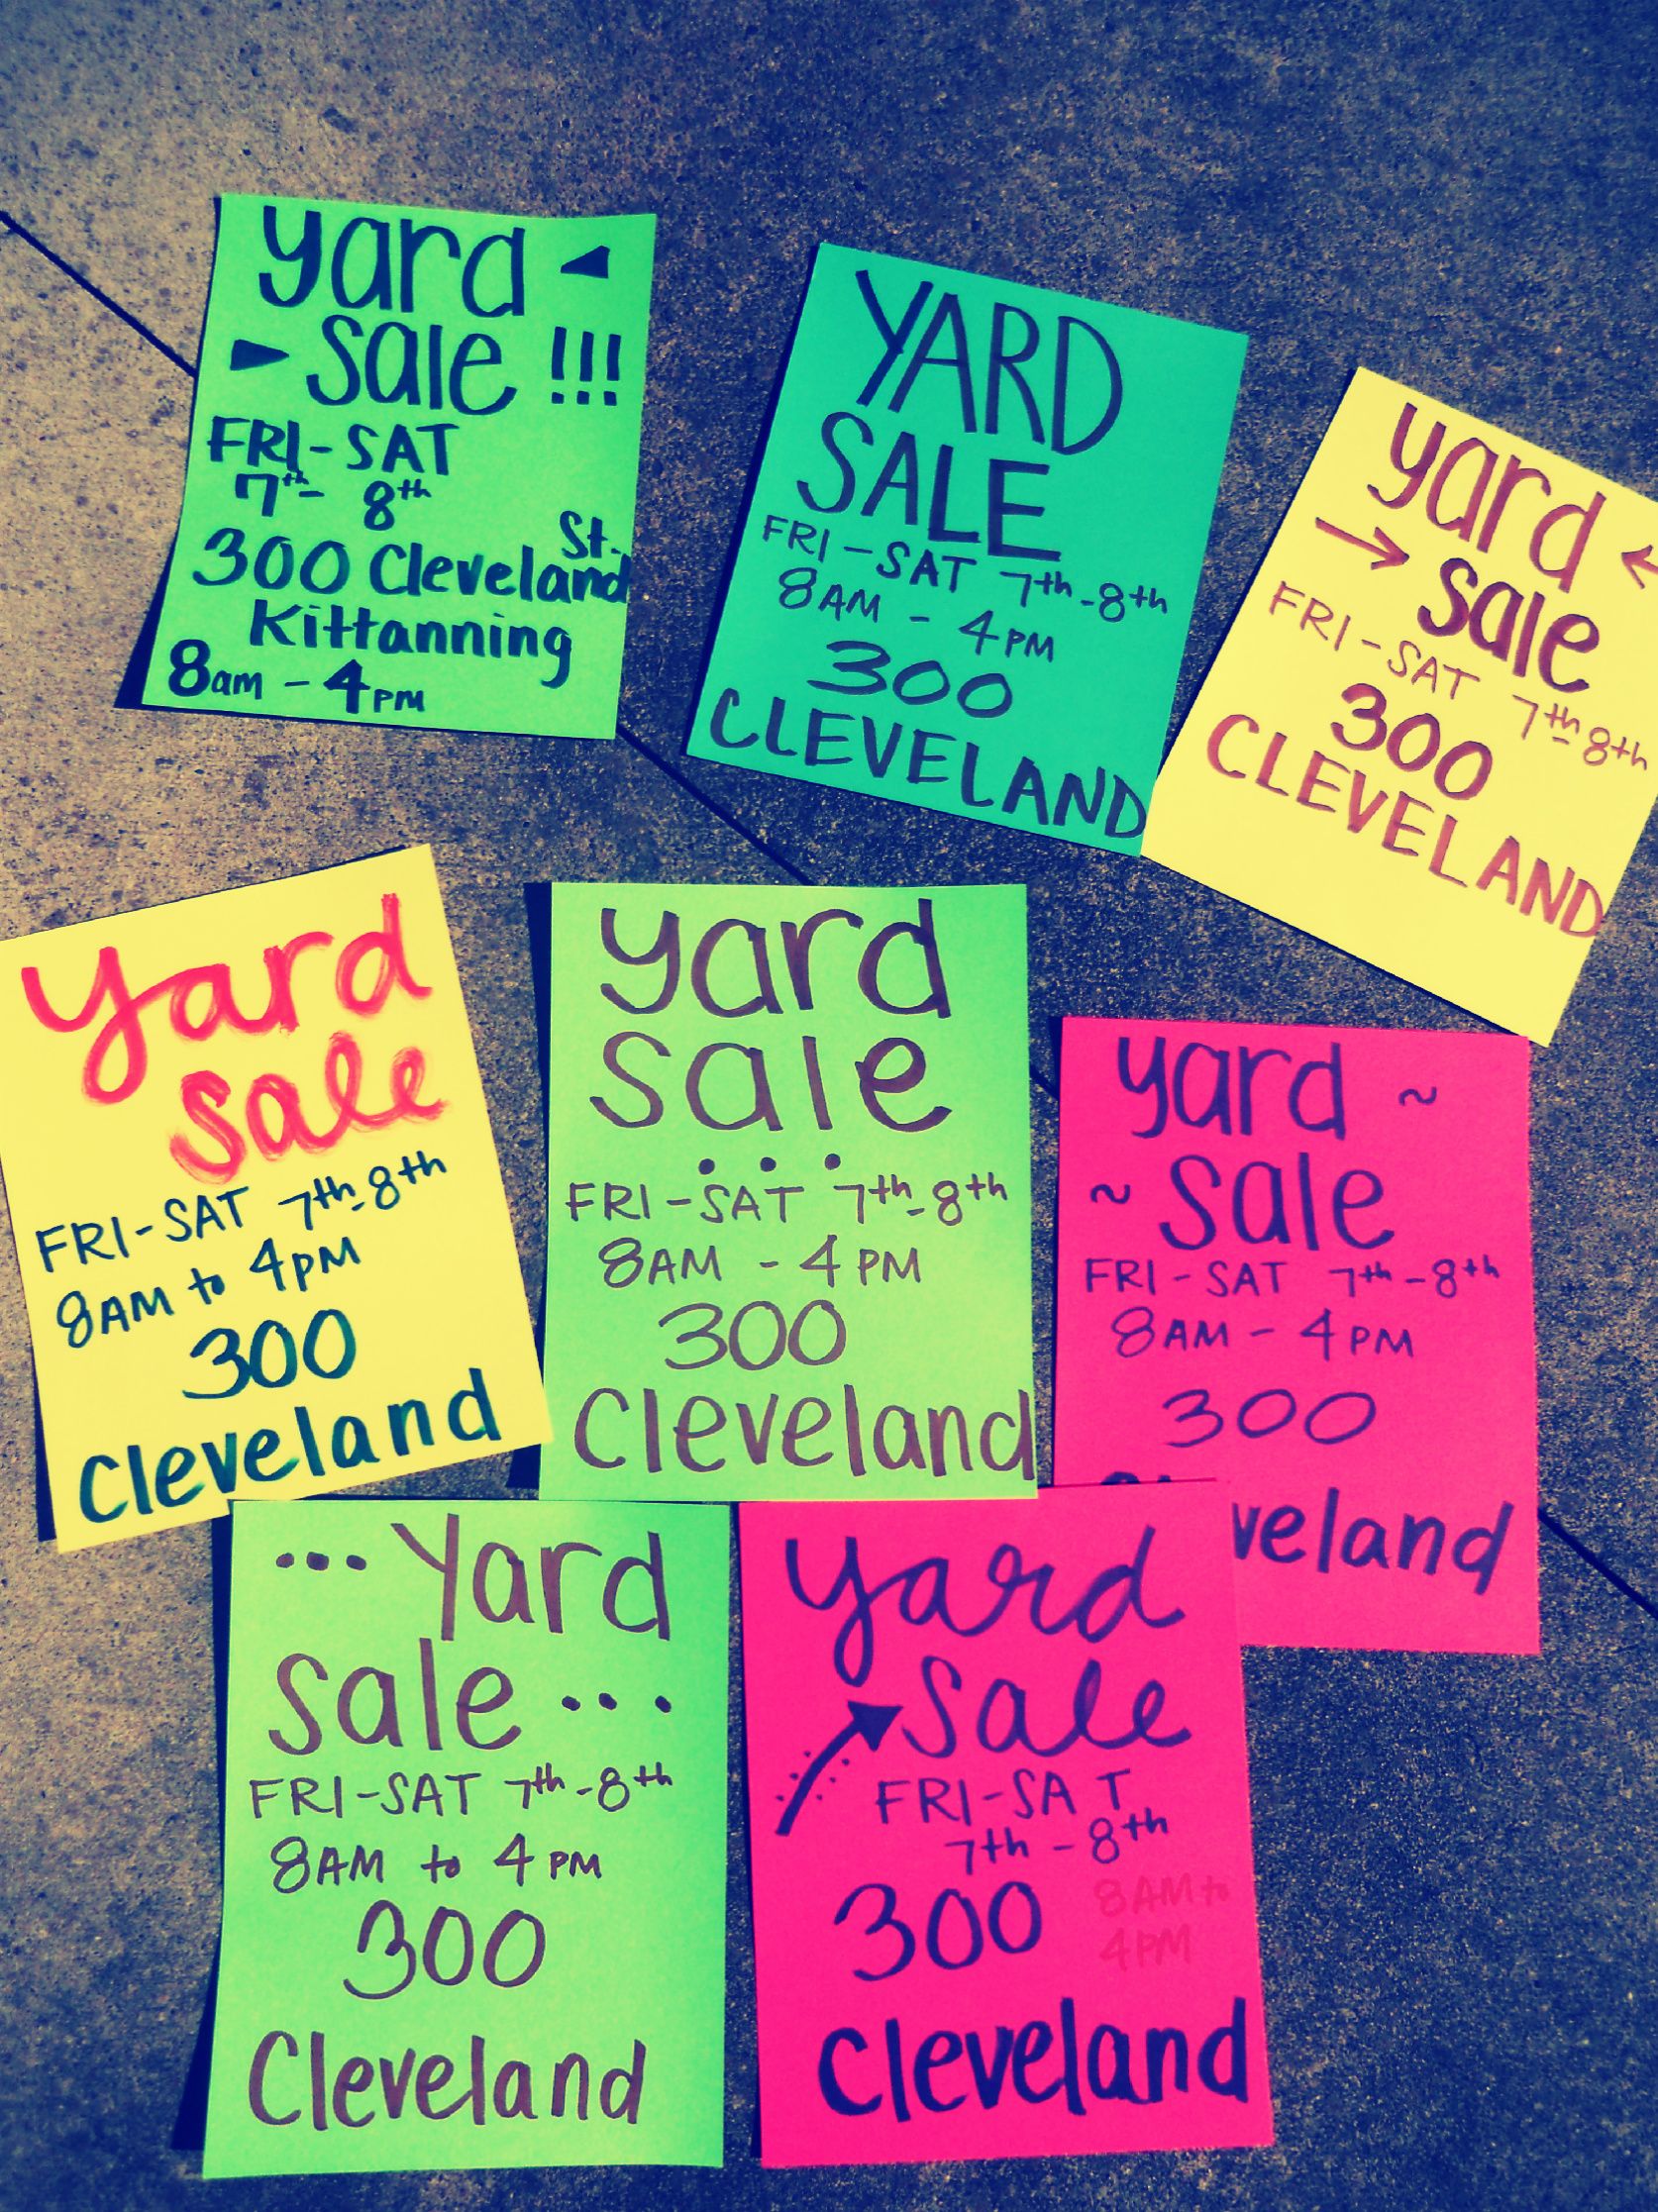 yard
sale !!!
FRI-SAT
7th- 8th
300 Cleveland St.
Kittanning
8am - 4pm
YARD
SALE
FRI-SAT 7th-8th
8AM - 4PM
300
CLEVELAND
yard
sale
FRI-SAT 7th-8th
300
CLEVELAND
yard
sale
FRI-SAT 7th-8th
8AM to 4PM
300
Cleveland
yard
sale
...
FRI-SAT 7th-8th
8AM - 4PM
300
Cleveland
yard ~
~ sale
FRI-SAT 7th-8th
8AM - 4PM
300
veland
...Yard
sale...
FRI-SAT 7th-8th
8AM to 4PM
300
Cleveland
yard
sale
FRI-SAT
7th-8th
300 8AM to
4PM
Cleveland